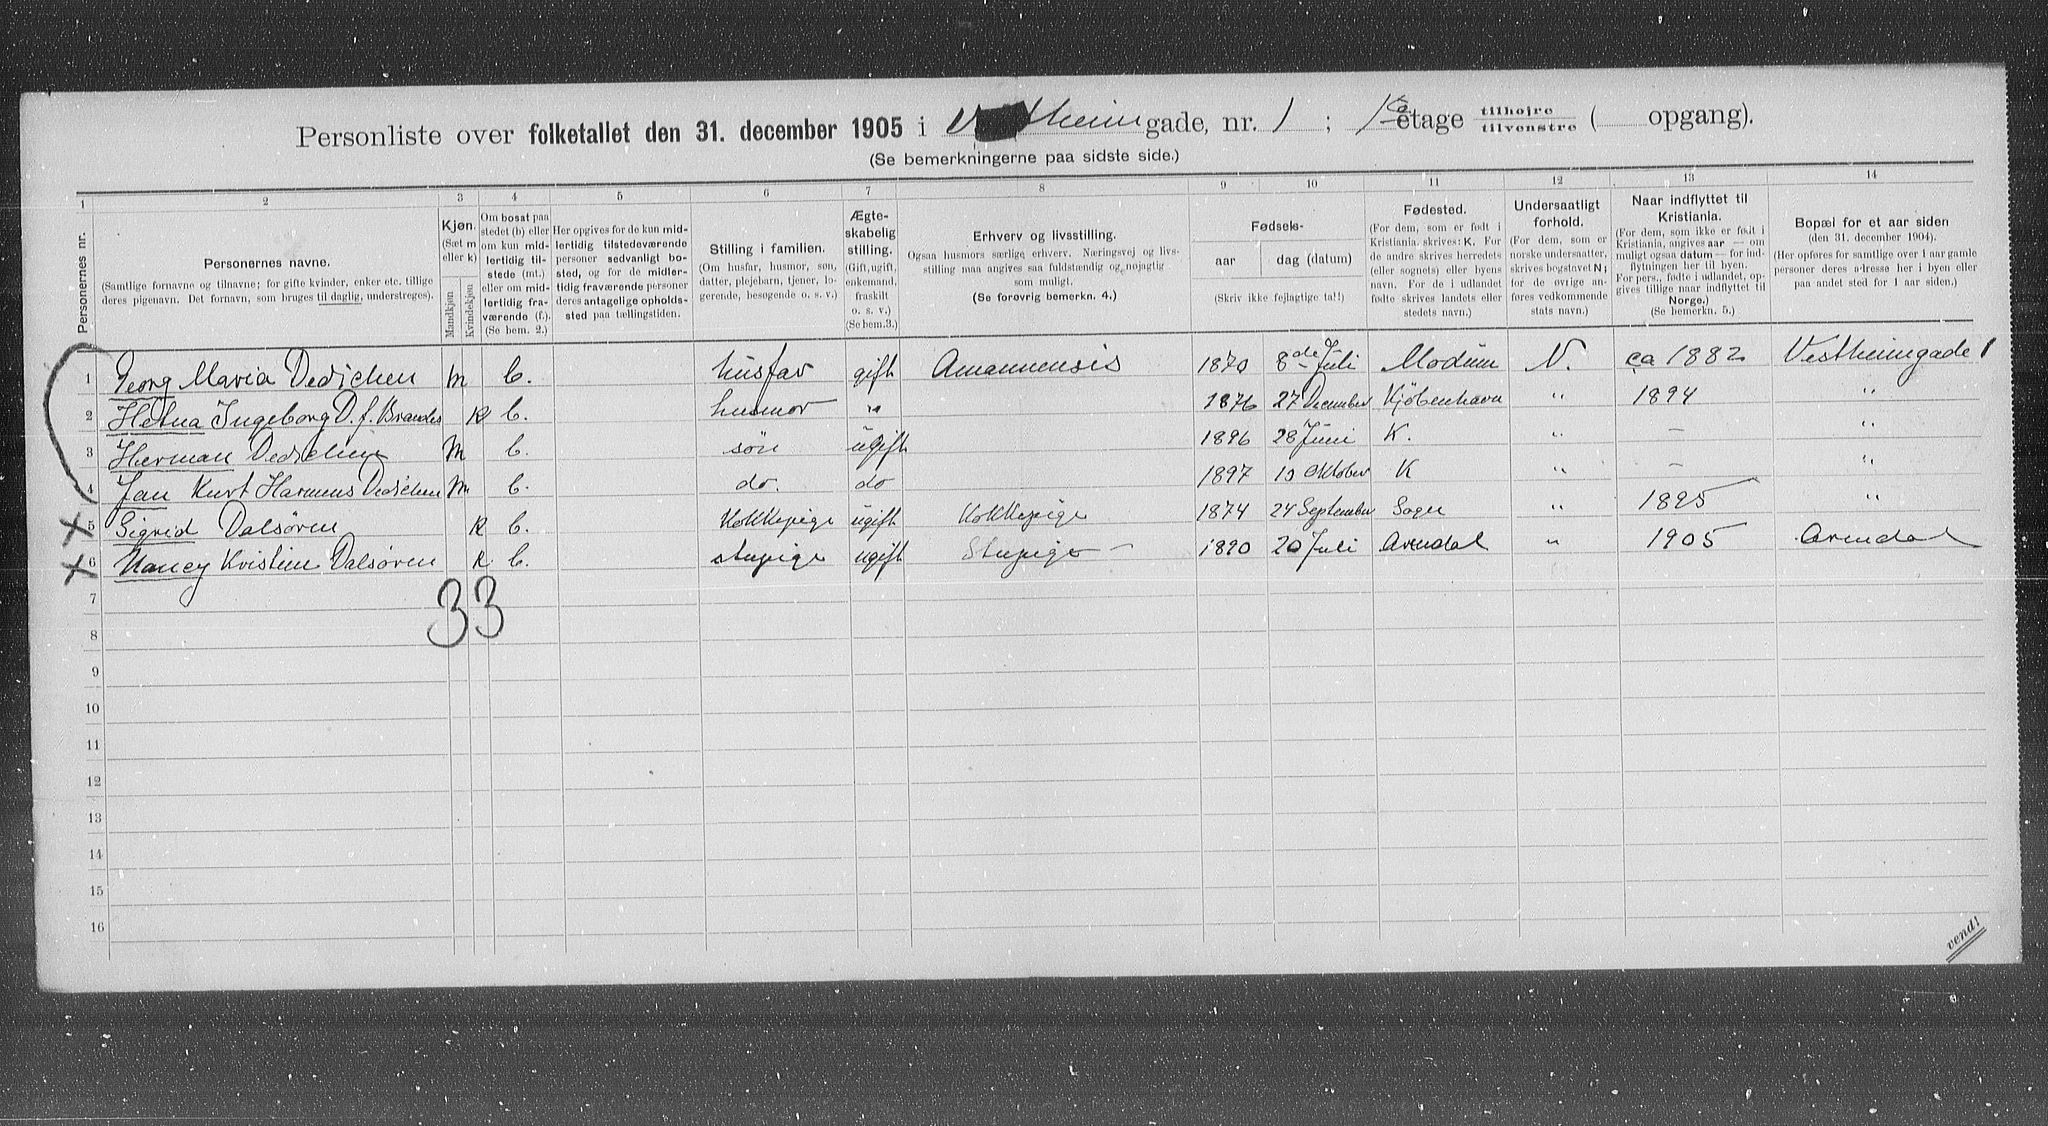 Personliste over folketallet den 31. december 1905 i Vestheim gade, nr. 1 ; 1ste etage tilhøjre tilvenstre ( opgang).
(Se bemerkningerne paa sidste side.)
1 2 3 4 5 6 7 8 9 10 11 12 13 14
Personernes nr.
Personernes navne.
(Samtlige fornavne og tilnavne; for gifte kvinder, enker etc. tillige
deres pigenavn. Det fornavn, som bruges til daglig, understreges).
Kjøn.
(Sæt m
eller k)
Mandkjøn
Kvindekjøn
Om bosat paa
stedet (b) eller
om kun mid-
lertidig til-
stede (mt.)
eller om mid-
lertidig fra-
værende (f.).
(Se bem. 2.)
Her opgives for de kun mid-
lertidig tilstedeværende
personer sedvanligt bo-
sted, og for de midler-
tidig fraværende personer
deres antagelige opholds-
sted paa tællingstiden.
Stilling i familien.
(Om husfar, husmor, søn,
datter, plejebarn, tjener, lo-
gerende, besøgende o. s. v.)
Ægte-
skabelig
stilling.
(Gift, ugift,
enkemand,
fraskilt
o. s. v.)
(Se bem.3.)
Erhverv og livsstilling.
Ogsaa husmors særlige erhverv. Næringsvej og livs-
stilling maa angives saa fuldstændig og nøjagtig
som muligt.
(Se forøvrig bemerkn. 4.)
Fødsels-
aar
dag (datum)
(Skriv ikke fejlagtige tal!)
Fødested.
(For dem, som er født i
Kristiania, skrives: K. For
de andre skrives herredets
(eller sognets) eller byens
navn. For de i udlandet
fødte skrives landets eller
stedets navn.)
Undersaatligt
forhold.
(For dem, som er
norske undersaatter,
skrives bogstavet N;
for de øvrige an-
føres vedkommende
stats navn.)
Naar indflyttet til
Kristiania.
(For dem, som ikke er født i
Kristiania, angives aar — om
muligt ogsaa datum — for ind-
flytningen her til byen.
For pers., fødte i udlandet, op-
gives tillige naar indflyttet til
Norge.)
(Se bemerkn. 5.)
Bopæl for et aar siden
(den 31. december 1904).
(Her opføres for samtlige over 1 aar gamle
personer deres adresse her i byen eller
paa andet sted for 1 aar siden.)
1 Georg Maria Dedichen m b. husfar gift Amanuensis 1870 8de Juli Modum N. ca 1882 Vestheimgade 1
2 Helna Ingeborg D. f. Brandes k b. husmor " 1876 27 December Kjøbenhavn " 1894 "
3 Herman Dedichen m b. søn ugift 1896 28 Juni K. " — "
4 Jan Kurt Harmens Dedichen m b. do. do 1897 10 Oktober K " — "
5 Sigrid Dalsøren k b. Kokkepige ugift Kokkepige 1874 24 September Sogn " 1895 "
6 Nancy Kristine Dalsøren k b. stupige ugift Stupige 1890 20 Juli Arendal " 1905 Arendal
7
33
8
9
10
11
12
13
14
15
16
vend!